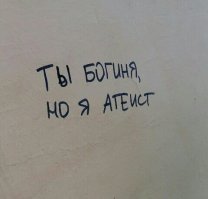 ТЫ БОГИНЯ,
НО Я АТЕИСТ